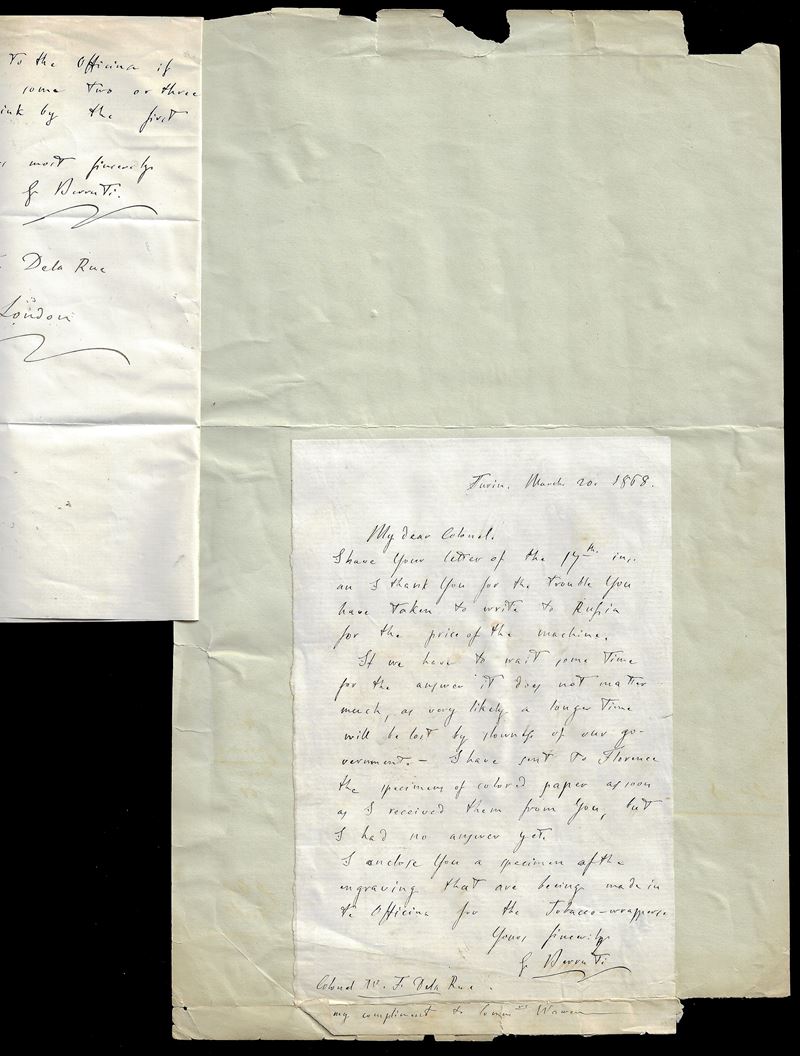 To the Officina if
some two or three
ink by the first
most sincerely
G Berruti.
Dela Rue
London
Turin. March 20. 1868.
My dear Colonel.
I have Your letter of the 17th ins.
an I thank You for the trouble You
have taken to write to Russia
for the price of the machine.
If we have to wait some time
for the answer it does not matter
much, as very likely a longer time
will be lost by slowness of our go-
vernment. - I have sent to Florence
the specimens of colored paper as soon
as I received them from You, but
I had no answer yet.
I enclose You a specimen of the
engraving that are being made in
te Officina for the Tobacco-wrappers
Yours sincerely
G Berruti
Colonel W. F. Dela Rue.
my compliment to